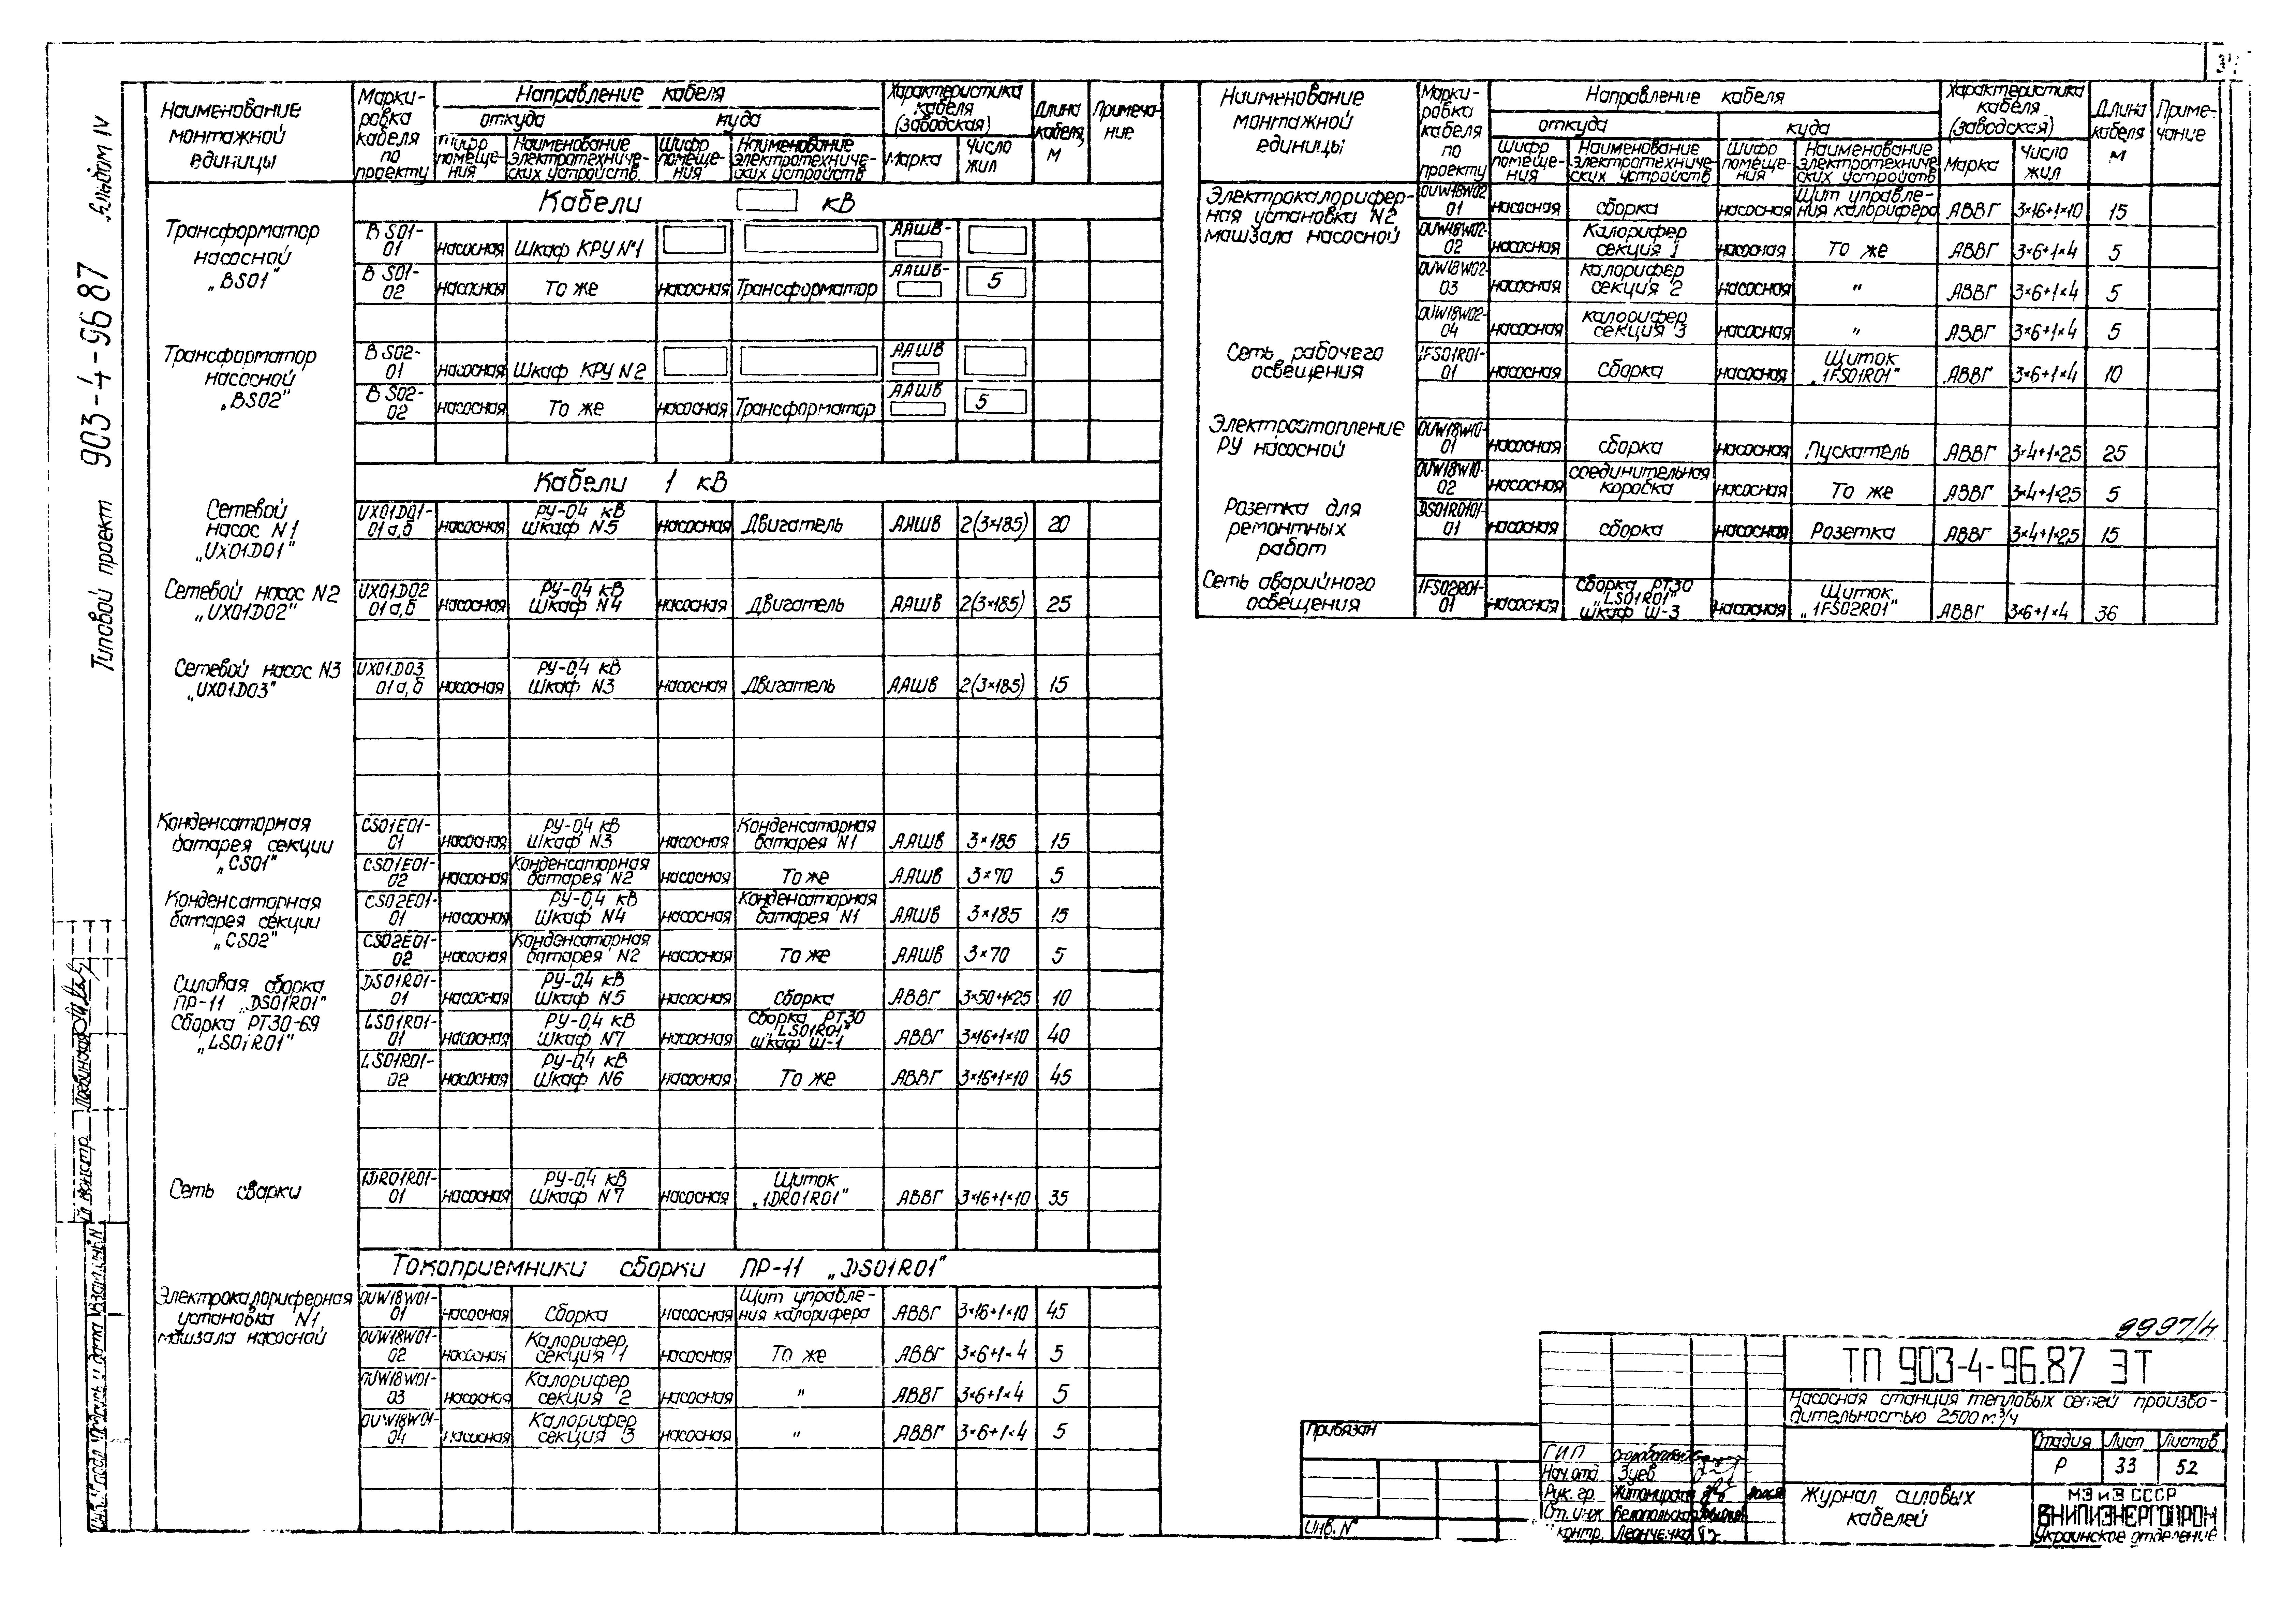 Альбом IV
Типовой проект 903-4-96.87
Наименование монтажной единицы
Маркировка кабеля по проекту
Направление кабеля
откуда куда
Шифр помещения
Наименование электротехнических устройств
Шифр помещения
Наименование электротехнических устройств
Характеристика кабеля (заводская)
Марка
Число жил
Длина кабеля, м
Примечание
Кабели кВ
Трансформатор насосной „BS01"
BS01-01 насосная Шкаф КРУ №1 ААШВ-
BS01-02 насосная То же насосная Трансформатор ААШВ- 5
Трансформатор насосной „BS02"
BS02-01 насосная Шкаф КРУ N2 ААШВ
BS02-02 насосная То же насосная Трансформатор ААШВ 5
Кабели 1 кВ
Сетевой насос N1 „UX01D01"
UX01D01-01а,б насосная РУ-0,4 кВ Шкаф N5 насосная Двигатель ААШВ 2(3×185) 20
Сетевой насос N2 „UX01D02"
UX01D02 01а,б насосная РУ-0,4 кВ Шкаф N4 насосная Двигатель ААШВ 2(3×185) 25
Сетевой насос N3 „UX01D03"
UX01D03 01а,б насосная РУ-0,4 кВ Шкаф N3 насосная Двигатель ААШВ 2(3×185) 15
Конденсаторная батарея секции „CS01"
CS01E01-01 насосная РУ-0,4 кВ Шкаф N3 насосная Конденсаторная батарея N1 ААШВ 3×185 15
CS01E01-02 насосная Конденсаторная батарея N2 насосная То же ААШВ 3×70 5
Конденсаторная батарея секции „CS02"
CS02E01-01 насосная РУ-0,4 кВ Шкаф N4 насосная Конденсаторная батарея N1 ААШВ 3×185 15
CS02E01-02 насосная Конденсаторная батарея N2 насосная То же ААШВ 3×70 5
Силовая сборка ПР-11 „DS01R01"
DS01R01-01 насосная РУ-0,4 кВ Шкаф N5 насосная Сборка АВВГ 3×50+1×25 10
Сборка РТ30-69 „LS01R01"
LS01R01-01 насосная РУ-0,4 кВ Шкаф N7 насосная Сборка РТ30 „LS01R01" шкаф Ш-1 АВВГ 3×16+1×10 40
LS01R01-02 насосная РУ-0,4 кВ Шкаф N6 насосная То же АВВГ 3×16+1×10 45
Сеть сварки
1DR01R01-01 насосная РУ-0,4 кВ Шкаф N7 насосная Щиток „1DR01R01" АВВГ 3×16+1×10 35
Токоприемники сборки ПР-11 „DS01R01"
Электрокалориферная установка N1 машзала насосной
0UW18W01-01 насосная Сборка насосная Щит управления калорифера АВВГ 3×16+1×10 45
0UW18W01-02 насосная Калорифер секция 1 насосная То же АВВГ 3×6+1×4 5
0UW18W01-03 насосная Калорифер секция 2 насосная " АВВГ 3×6+1×4 5
0UW18W01-04 насосная Калорифер секция 3 насосная " АВВГ 3×6+1×4 5
Наименование монтажной единицы
Маркировка кабеля по проекту
Направление кабеля
откуда куда
Шифр помещения
Наименование электротехнических устройств
Шифр помещения
Наименование электротехнических устройств
Характеристика кабеля (заводская)
Марка
Число жил
Длина кабеля м
Примечание
Электрокалориферная установка N2 машзала насосной
0UW18W02-01 насосная сборка насосная Щит управления калорифера АВВГ 3×16+1×10 15
0UW18W02-02 насосная Калорифер секция 1 насосная То же АВВГ 3×6+1×4 5
0UW18W02-03 насосная калорифер секция 2 насосная " АВВГ 3×6+1×4 5
0UW18W02-04 насосная калорифер секция 3 насосная " АВВГ 3×6+1×4 5
Сеть рабочего освещения
1FS01R01-01 насосная сборка насосная Щиток „1FS01R01" АВВГ 3×6+1×4 10
Электроотопление РУ насосной
0UW18W10-01 насосная сборка насосная Пускатель АВВГ 3×4+1×2,5 25
0UW18W10-02 насосная соединительная коробка насосная То же АВВГ 3×4+1×2,5 5
Розетка для ремонтных работ
DS01R0101-01 насосная сборка насосная Розетка АВВГ 3×4+1×2,5 15
Сеть аварийного освещения
1FS02R01-01 насосная Сборка РТ30 „LS01R01" шкаф Ш-3 насосная Щиток „1FS02R01" АВВГ 3×6+1×4 36
9997/4
ТП 903-4-96.87 ЭТ
Насосная станция тепловых сетей производительностью 2500 м³/ч
Привязан
Инв. N
ГИП
Нач. отд. Зуев
Рук. гр. Житомирская
Ст. инж. Белопольская
контр. Леонченко
Стадия Лист Листов
Р 33 52
Журнал силовых кабелей
МЭ и Э СССР
ВНИПИЭНЕРГОПРОМ
Украинское отделение